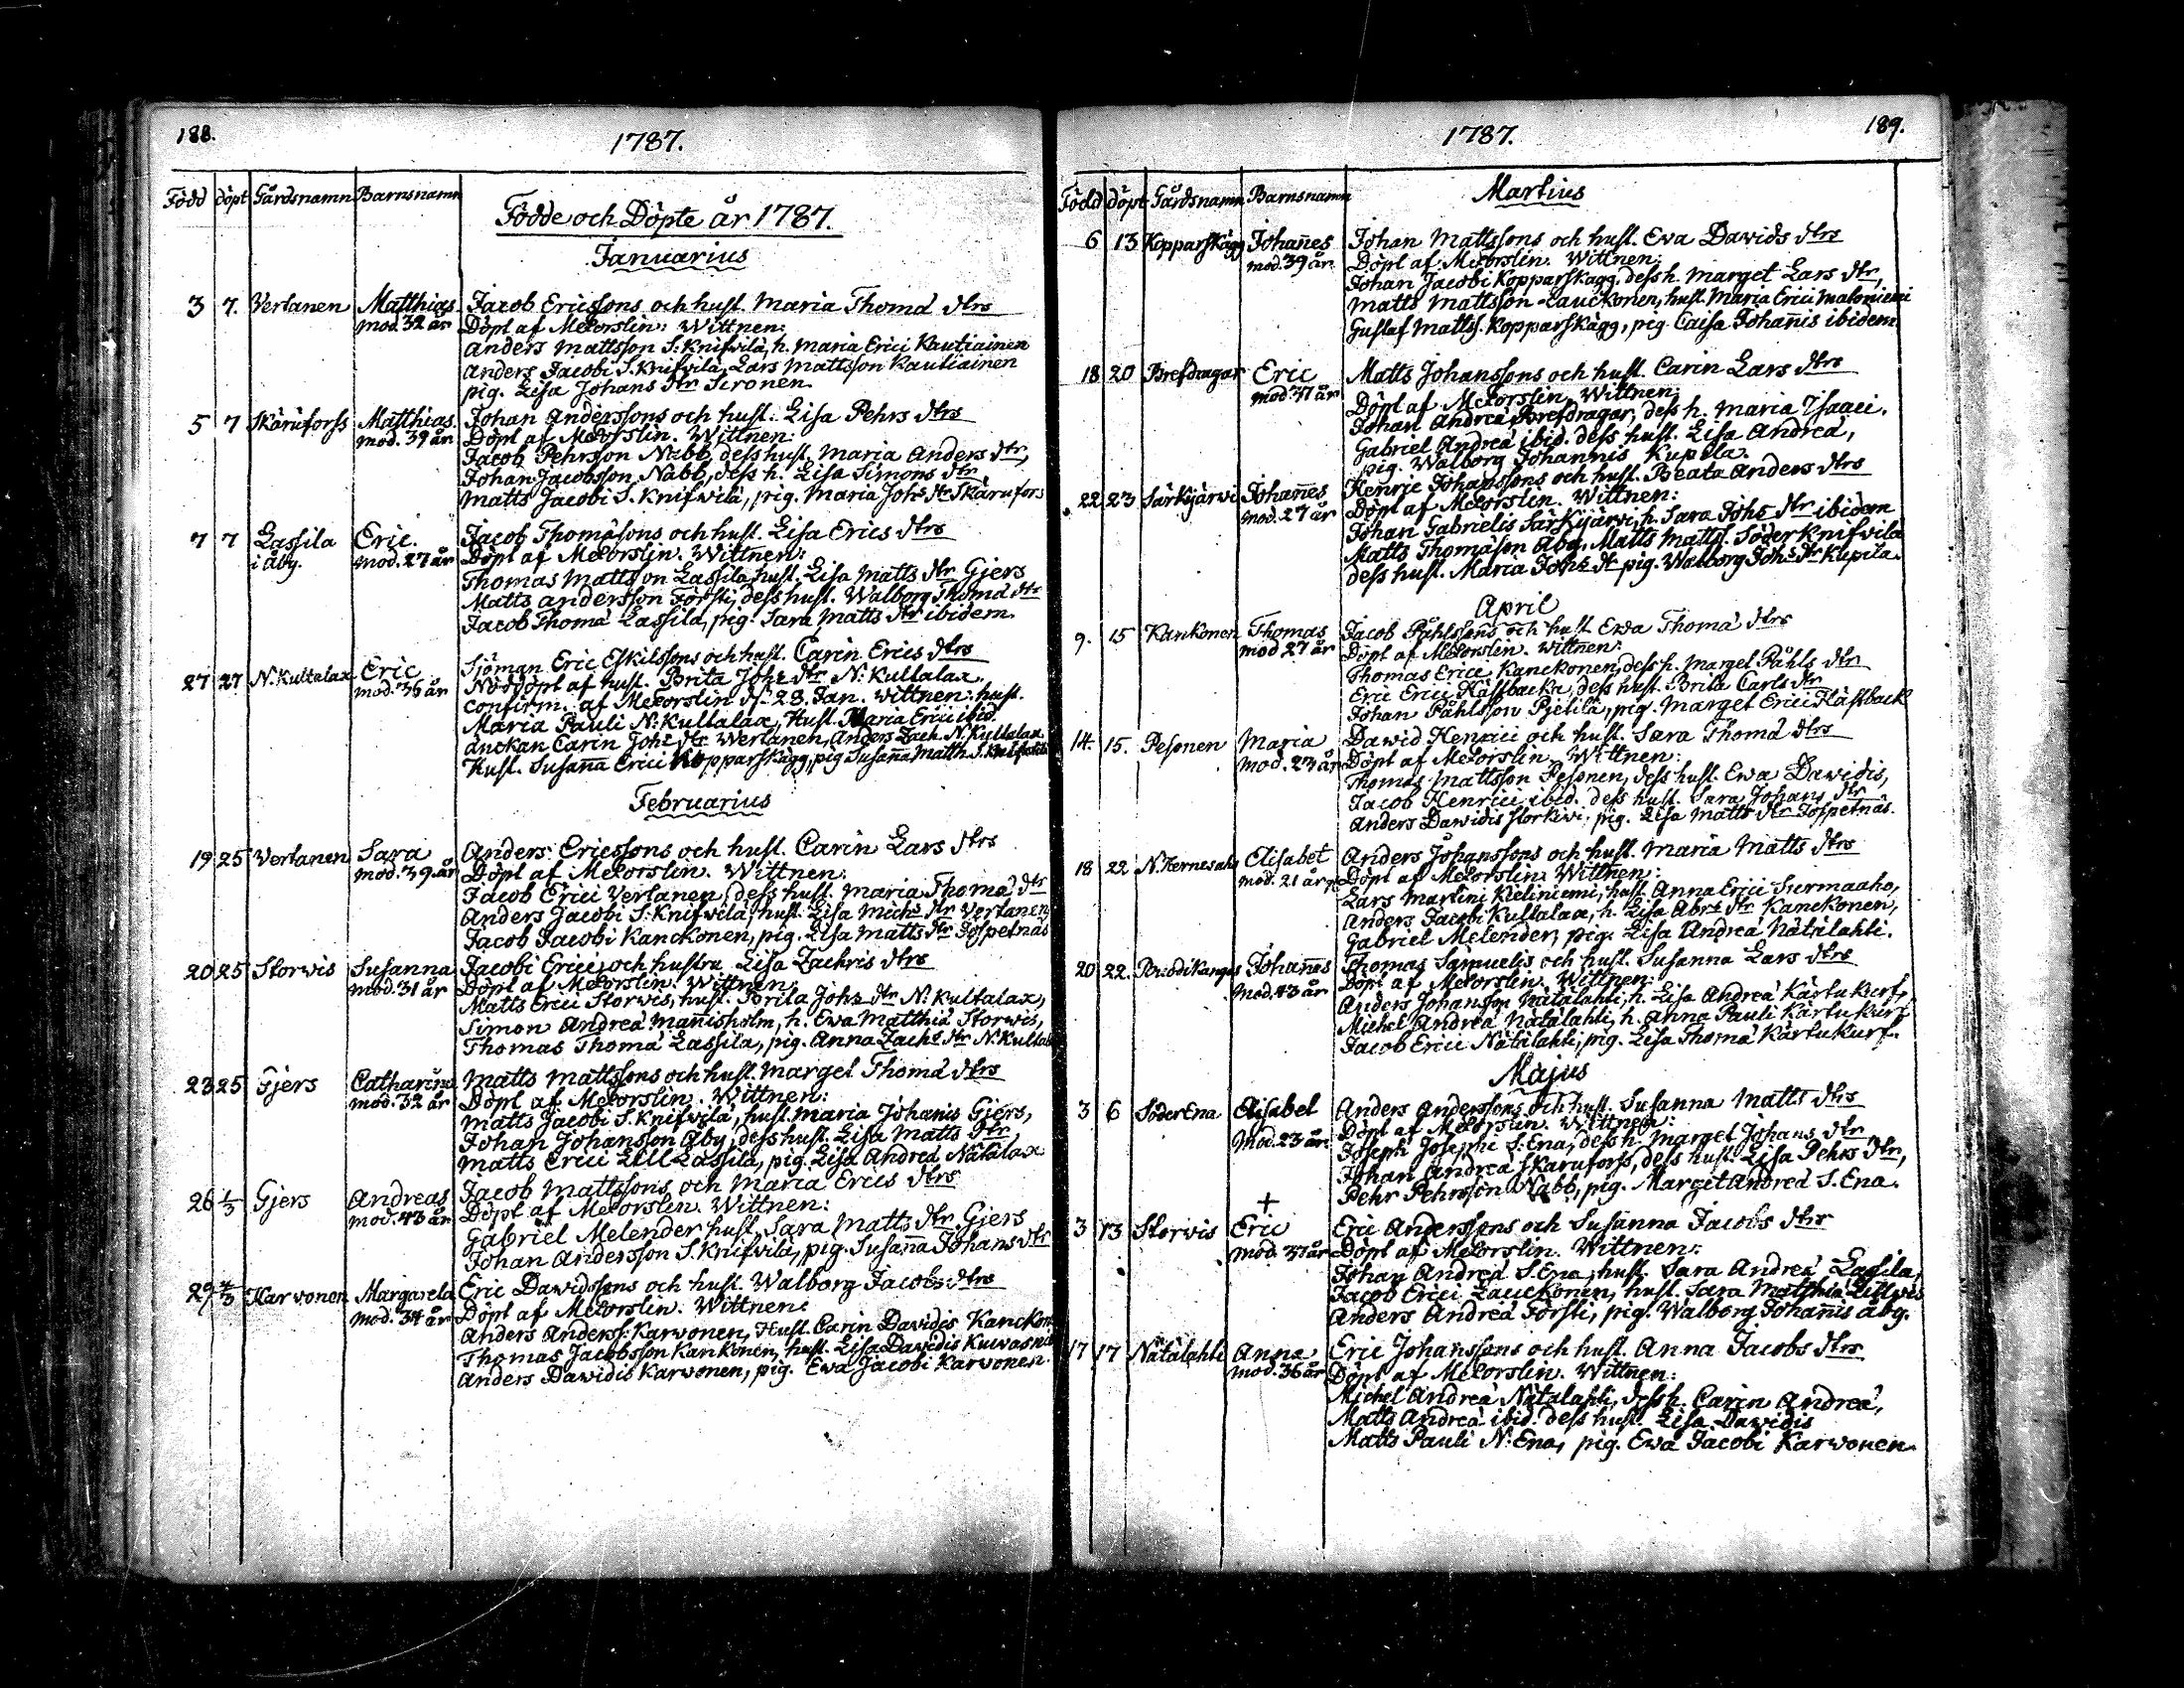 188.
1787.
Född döpt Gårdsnamn Barnsnamn
Födde och Döpte år 1787.
Januarius
3 7. Vertanen Matthias Jacob Ericssons och hust. Maria Thomæ dtrs
mod. 32 år Döpt af Melorslin: Wittnen:
Anders Mattsson S: Knifvilä, h. Maria Erici Kautiainen
Anders Jacobi S. Knifvilä, Lars Mattsson Kautiainen
pig. Lisa Johans dtr Sironen.
5 7 Skäruforss Matthias. Johan Anderssons och hust. Lisa Pehrs dtrs
mod. 39 år Döpt af Melorslin. Wittnen:
Jacob Pehrsson Nabb, dess hust. Maria Anders dtr,
Johan Jacobsson Nabb, dess h. Lisa Simons dtr
Matts Jacobi S. Knifwilä, pig. Maria Johs dtr Skärufors
7 7 Lassila Eric. Jacob Thomäsons och hust. Lisa Erics dtrs
i Åby. mod. 27 år Döpt af Melorslin. Wittnen:
Thomas Mattson Lassila, hust. Lisa Matts dtr Gjers
Matts Andersson Försti, dess hust. Walborg Thomæ dtr
Jacob Thomæ Lassila, pig. Sara Matts dtr ibidem.
27 27 N. Kultalax Eric Sjöman Eric Eskilssons och hust. Carin Erics dtrs
mod. 36 år Nöddöpt af hust. Brita Johs dtr N: Kultalax,
confirm. af Melorslin d. 28. Jan. Wittnen: hust.
Maria Pauli N: Kultalax, Hust. Maria Erici ibid.
änckan Carin Johs dtr Wertanen, Anders Zach. N. Kultalax
Hust. Susana Erici Kopparskägg, pig Susana Matth. S. Knifwilä
Februarius
19 25 Vertanen Sara Anders Ericssons och hust. Carin Lars dtrs
mod. 39. år Döpt af Melorslin. Wittnen.
Jacob Erici Vertanen, dess hust. Maria Thomæ dtr
Anders Jacobi S: Knifwilä, hust. Lisa Michs dtr Vertanen,
Jacob Jacobi Kanckonen, pig. Lisa Matts dtr Jospetnäs
20 25 Storwis Susanna Jacobi Erici, och hustru Lisa Zachris dtrs
mod. 31 år Döpt af Melorslin. Wittnen,
Matts Erici Storwis, hust. Brita Johs dtr N: Kultalax,
Simon Andreæ Mañisholm, h. Ewa Matthiæ Storwis,
Thomas Thomæ Lassila, pig. Anna Zachs dtr N: Kultala
23 25 Gjers Catharina Matts Mattssons och hust. Marget Thomæ dtrs
mod. 32 år Döpt af Melorslin. Wittnen:
Matts Jacobi S. Knifvilä, hust. Maria Johanis Gjers,
Johan Johansson Åby, dess hust. Lisa Matts dtr
Matts Erici Lill Lassila, pig. Lisa Andreæ Nätälax
26 1/3 Gjers Andreas Jacob Mattssons och Maria Erics dtrs
mod. 43 år Döpt af Melorslin. Wittnen:
Gabriel Melender hust. Sara Matts dtr Gjers
Johan Andersson S. Knifvilä, pig. Susaña Johans dtr
29 4/3 Karvonen Margareta Eric Dawidssons och hust. Walborg Jacobs dtrs
mod. 34 år Döpt af Melorslin. Wittnen:
Anders Anderss: Karwonen, Hust. Carin Davidis Kanckon
Thomas Jacobsson Kankonen, hust. Lisa Davidis Kuwasnä
Anders Dawidis Karwonen, pig. Ewa Jacobi Karwonen.
1787.
189.
Född Döpt Gårdsnamn Barnsnamn
Martius
6 13 Kopparskägg Johañes Johan Mattssons och hust. Eva Dawids dtrs
mod. 39 år Döpt af Melorslin. Wittnen:
Johan Jacobi Kopparskägg, dess h. Marget Lars dtr,
Matts Mattsson Lauckonen, hust. Maria Erici Matoniemi
Gustaf Mattss. Kopparskägg, pig. Caisa Johañis ibidem
18 20 Brefdragar Eric Matts Johanssons och hust. Carin Lars dtrs
mod 37 år Döpt af Melorslin. Wittnen:
Johan Andreæ Brefdragar, dess h. Maria Isaaci.
Gabriel Andreæ ibid. dess hust. Lisa Andreæ,
pig. Walborg Johannis Kupila.
22 23 Särkijärvi Johañes Henric Johanssons och hust. Beata Anders dtrs
mod. 27 år Döpt af Melorslin. Wittnen:
Johan Gabrielis Särkijärwi, h. Sara Johs dtr ibidem
Matts Thomäson Åby, Matts Matts. Söderknifvilä
dess hust. Maria Johs dtr pig. Walborg Johs dtr Kupila.
April
9. 15 Kankonen Thomas Jacob Påhlssons och hust. Ewa Thomæ dtrs
mod 27 år Döpt af Melorslin. Wittnen:
Thomas Erici Kanckonen, dess h. Marget Påhls dtr
Eric Erici Hästbacka, dess hust. Brita Carls dtr
Johan Påhlsson Pjetilä, pig. Marget Erici Hästback
14. 15. Pesonen Maria Dawid Henrici och hust. Sara Thomæ dtrs
mod. 23 år Döpt af Melorslin. Wittnen:
Thomas Mattsson Pesonen, dess hust. Ewa Dawidis,
Jacob Henrici ibid. dess hust. Sara Johans dtr
Anders Dawidis Storkivi, pig. Lisa Matts dtr Jospetnäs.
18 22 Elisabet Anders Johanssons och hust. Maria Matts dtrs
mod. 21 år Döpt af Melorslin. Wittnen:
Lars Martini Kieliniemi, hust. Anna Erici Surmaaho,
Anders Jacobi Kultalax, h. Lisa Abrs dtr Kanckonen,
Gabriel Melender, pig. Lisa Andreæ Nätälahti.
20 22. Johañes Thomas Samuelis och hust. Susanna Lars dtrs
Mod. 43 år Döpt af Melorslin. Wittnen:
Anders Johansson Nätälahti, h. Lisa Andreæ Kärtukurf,
Michel Andreæ Nätälahti, h. Anna Pauli Kärtukurf
Jacob Erici Nätälahti, pig. Lisa Thomæ Kärtukurf.
Majus
3 6 SöderEna Elisabet Anders Anderssons och hust. Susanna Matts dtrs
Mod. 23 år. Döpt af Melorslin. Wittnen:
Joseph Josephi S: Ena, dess h. Marget Johans dtr
Johan Andreæ Skäruforss, dess hust. Lisa Pehrs dtr,
Pehr Pehrsson Nabb, pig. Margit Andreæ S. Ena.
+
3 13 Storwis Eric Eric Anderssons och Susanna Jacobs dtrs
mod. 37 år Döpt af Melorslin. Wittnen:
Johan Andreæ S. Ena, hust. Sara Andreæ Lassila,
Jacob Erici Lauckonen, hust. Sara Matthiæ Lillwis
Anders Andreæ Försti, pig. Walborg Johañis åby.
17 17 Nätälahti Anna Eric Johanssons och hust. Anna Jacobs dtrs
mod. 36 år Döpt af Melorslin. Wittnen:
Michel Andreæ Nätälahti, dess h. Carin Andreæ,
Matts Andreæ ibid. dess hust. Lisa Dawidis
Matts Pauli N: Ena, pig. Ewa Jacobi Karwonen.